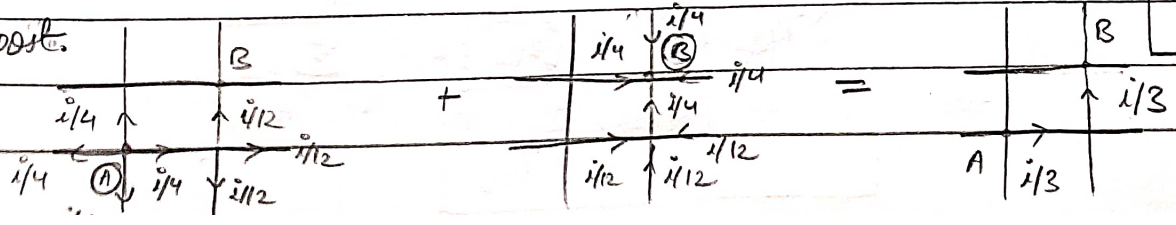 post.
B
i/4
i/12
i/12
i/4
A
i/4
i/12
+
i/4
i/4
B
i/4
i/4
i/12
i/12
i/12
=
B
i/3
A
i/3